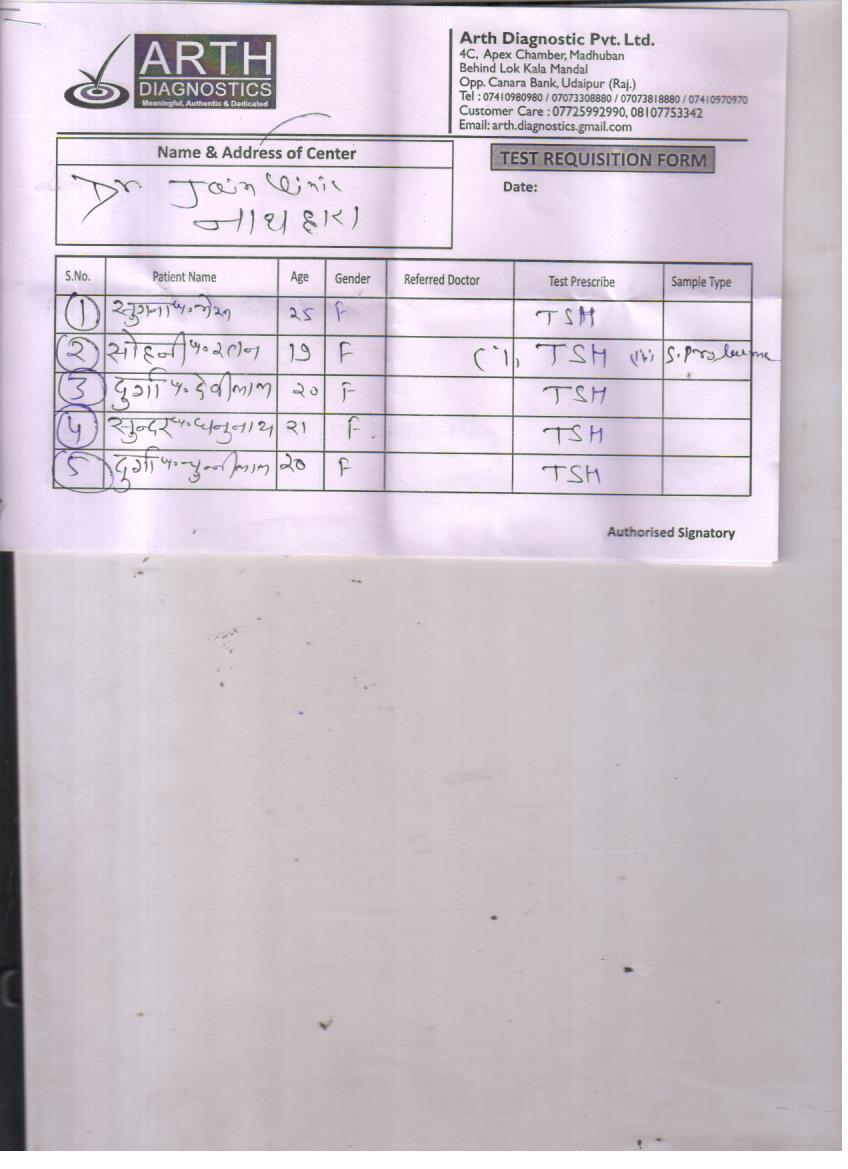 ARTH
DIAGNOSTICS
Meaningful, Authentic & Dedicated
Arth Diagnostic Pvt. Ltd.
4C, Apex Chamber, Madhuban
Behind Lok Kala Mandal
Opp. Canara Bank, Udaipur (Raj.)
Tel : 07410980980 / 07073308880 / 07073818880 / 07410970970
Customer Care : 07725992990, 08107753342
Email: arth.diagnostics.gmail.com
Name & Address of Center
TEST REQUISITION FORM
Date:
Dr. Jain Clinic
नाथद्वारा
S.No. Patient Name Age Gender Referred Doctor Test Prescribe Sample Type
1 25 F TSH
2 सोहनी प. रतन 19 F (i), TSH (ii) S.
3 दुर्गा प. देवीलाल 20 F TSH
4 सुन्दर प. 21 F TSH
5 दुर्गा प. 20 F TSH
Authorised Signatory